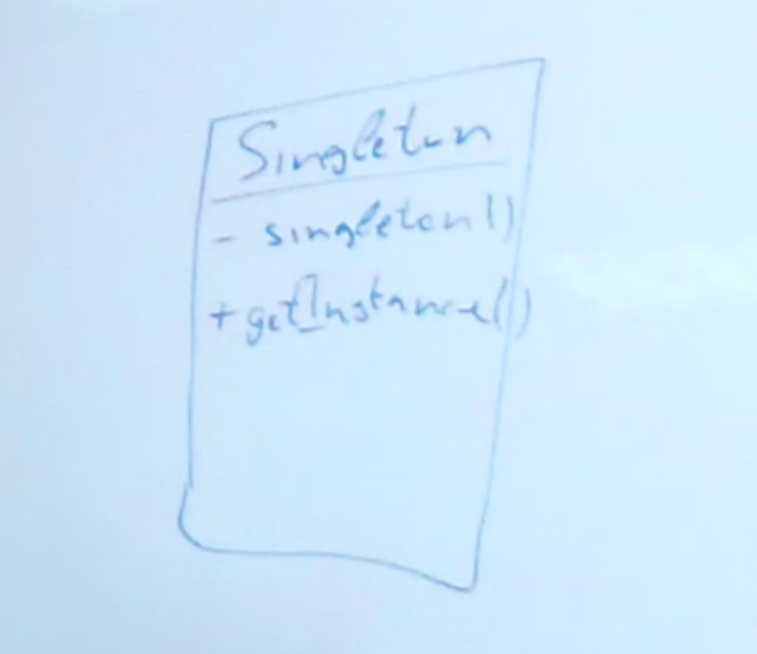 Singleton
- singleton()
+ getInstance()